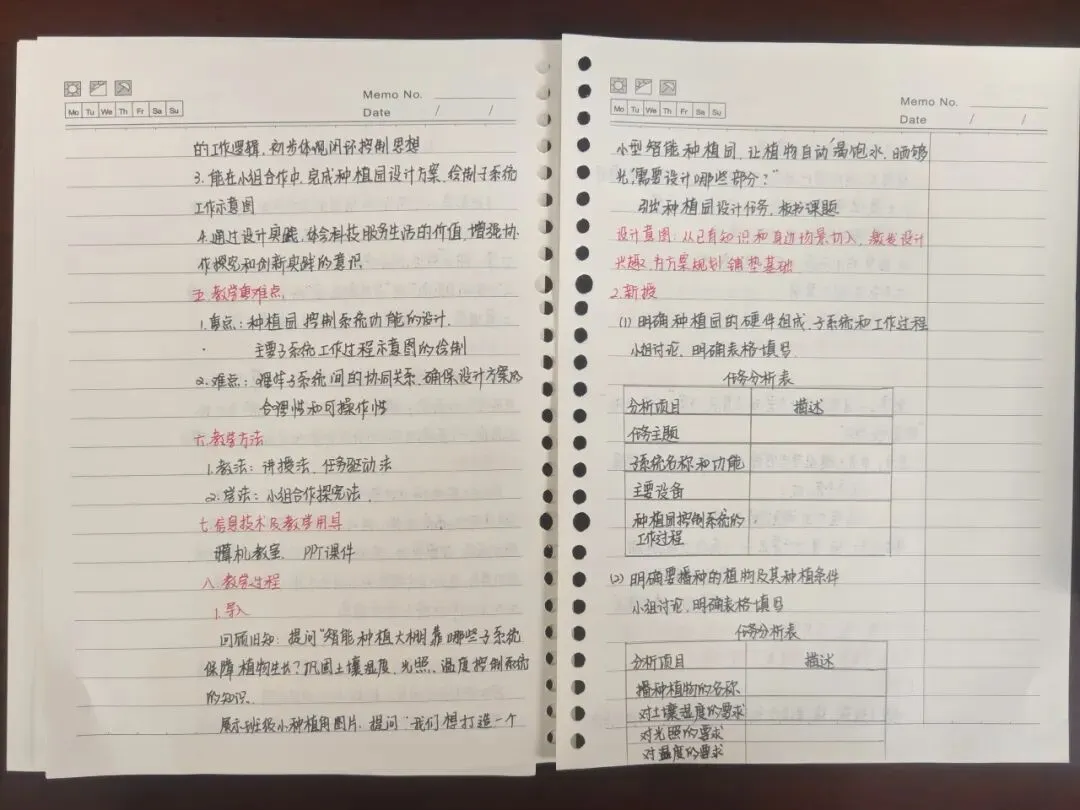 Memo No.
Mo Tu We Th Fr Sa Su
Date / /
的工作逻辑,初步体现闭环控制思想
3.能在小组合作中,完成种植园设计方案,绘制子系统
工作示意图
4.通过设计实践,体会科技服务生活的价值,增强协
作探究和创新实践的意识
五.教学重难点
1.重点:种植园控制系统功能的设计.
主要子系统工作过程示意图的绘制
2.难点:理解子系统间的协同关系,确保设计方案的
合理性和可操作性
六.教学方法
1.教法:讲授法、任务驱动法
2.学法:小组合作探究法
七.信息技术及教学用具
计算机教室、PPT课件
八.教学过程
1.导入
回顾旧知:提问“智能种植大棚靠哪些子系统
保障植物生长?巩固土壤湿度、光照、温度控制系统
的知识.
展示班级小种植角图片,提问“我们想打造一个
Memo No.
Mo Tu We Th Fr Sa Su
Date / /
小型智能种植园,让植物自动“喝饱水,晒够
光”需要设计哪些部分?”
引出种植园设计任务,板书课题
设计意图:从已有知识和身边场景切入,激发设计
兴趣,为方案规划铺垫基础
2.新授
(1)明确种植园的硬件组成、子系统和工作过程
小组讨论,明确表格填写
任务分析表
分析项目 描述
任务主题
子系统名称和功能
主要设备
种植园控制系统的
工作过程
(2)明确要播种的植物及其种植条件
小组讨论,明确表格填写
任务分析表
分析项目 描述
播种植物的名称
对土壤湿度的要求
对光照的要求
对温度的要求